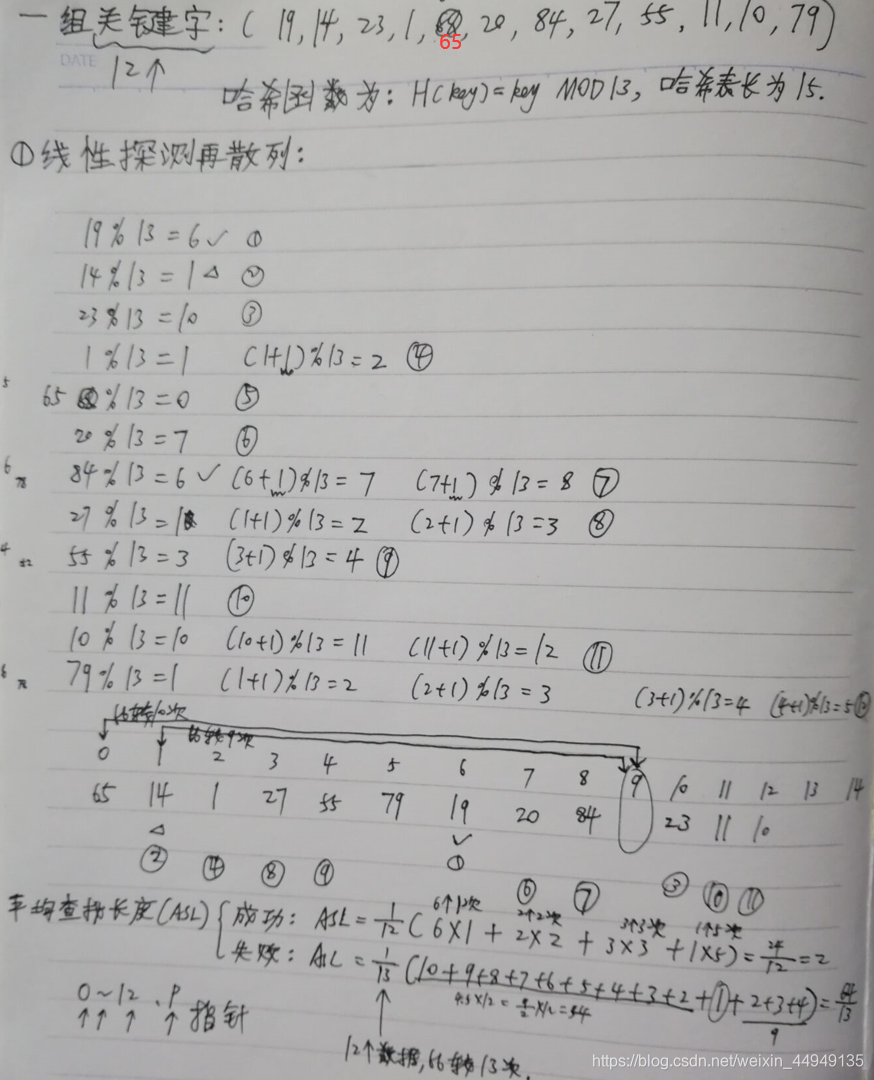 一组关键字:( 19, 14, 23, 1, 68, 20, 84, 27, 55, 11, 10, 79)
65
DATE
12个
哈希函数为: H(key)=key MOD 13, 哈希表长为15.
①线性探测再散列:
19%13=6✓ ①
14%13=1△ ②
23%13=10 ③
1%13=1 (1+1)%13=2 ④
65 %13=0 ⑤
20%13=7 ⑥
84%13=6✓ (6+1)%13=7 (7+1)%13=8 ⑦
27%13=1 (1+1)%13=2 (2+1)%13=3 ⑧
55%13=3 (3+1)%13=4 ⑨
11%13=11 ⑩
10%13=10 (10+1)%13=11 (11+1)%13=12 ⑪
79%13=1 (1+1)%13=2 (2+1)%13=3 (3+1)%13=4 (4+1)%13=5⑫
比较10次
比较9次
0 1 2 3 4 5 6 7 8 9 10 11 12 13 14
65 14 1 27 55 79 19 20 84 23 11 10
△ ✓
② ④ ⑧ ⑨ ① ⑥ ⑦ ③ ⑩ ⑪
6个1次 2个2次 3个3次 1个5次
平均查找长度(ASL) 成功: ASL=1/12(6×1+2×2+3×3+1×5)=24/12=2
失败: ASL=1/13(10+9+8+7+6+5+4+3+2+①+2+3+4)=64/13
9
0~12 .P
↑↑ ↑ ↑指针
12个数据,比较13次.
https://blog.csdn.net/weixin_44949135